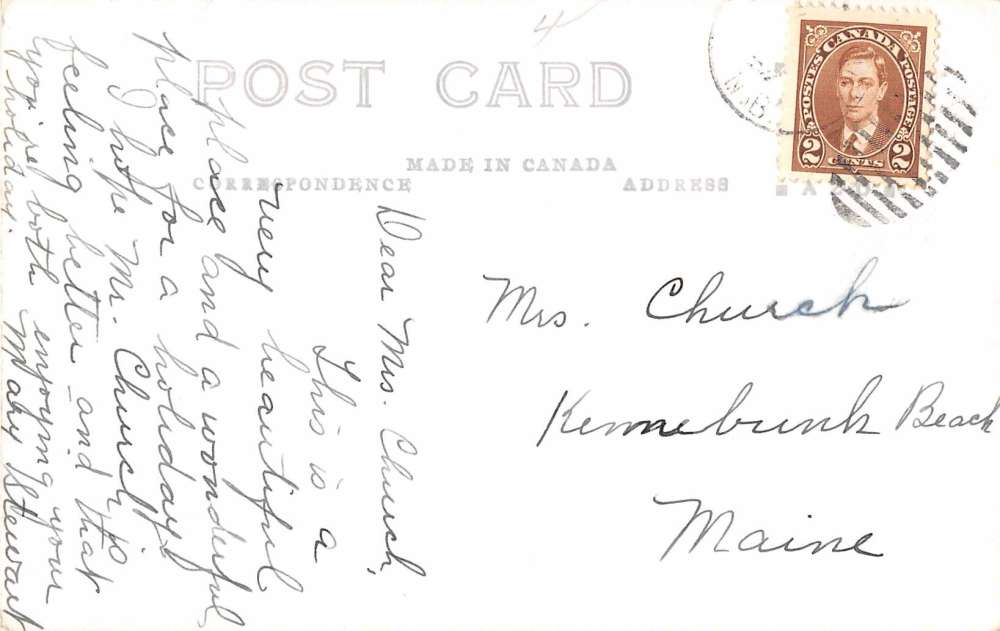 4
POST CARD
MADE IN CANADA
CORRESPONDENCE
ADDRESS
POSTES CANADA POSTAGE
2 CENTS 2
N.B.
Dear Mrs. Church,
This is a
very beautiful
place and a wonderful
place for a holiday.
I hope Mr. Church is
feeling better - and that
you're both enjoying your
holiday.
Mary Stewart
Mrs. Church
Kennebunk Beach
Maine